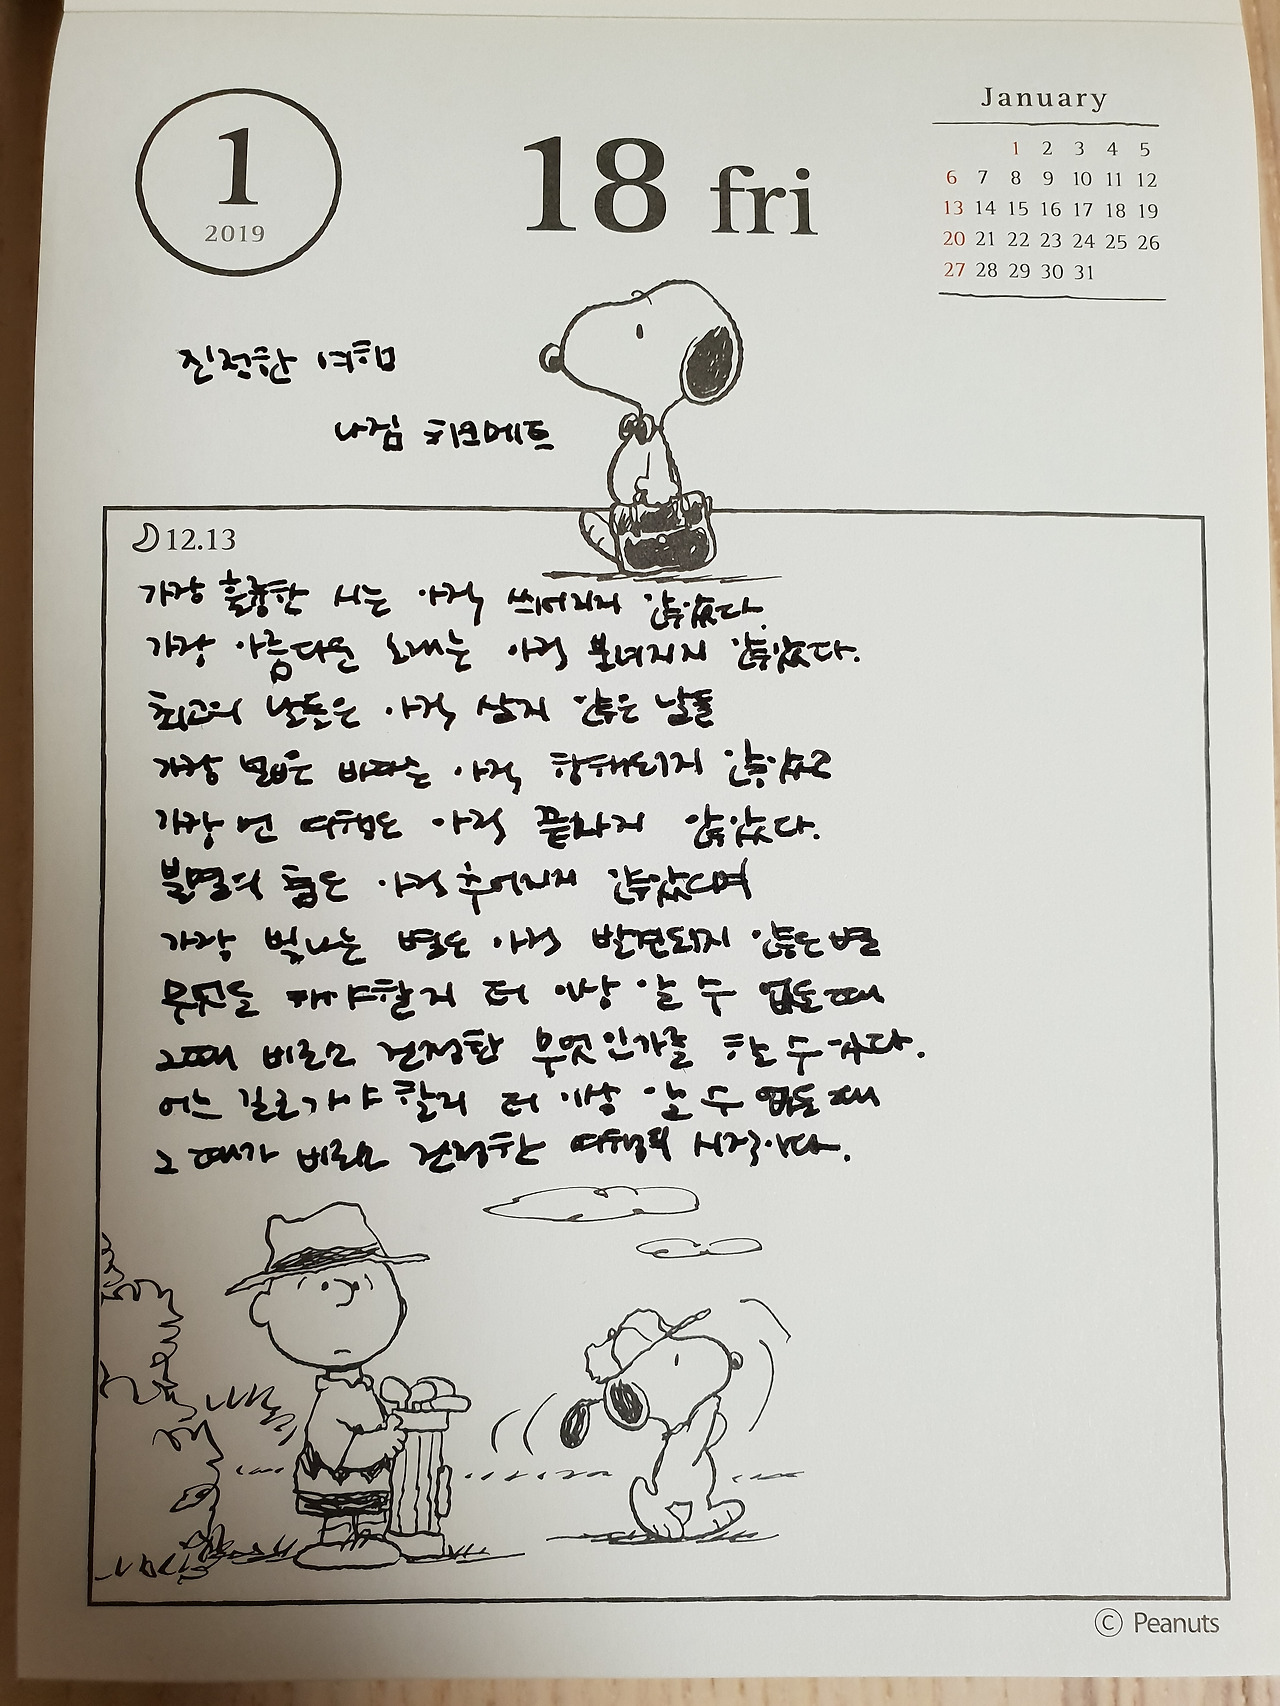 1
2019
18 fri
January
1 2 3 4 5
6 7 8 9 10 11 12
13 14 15 16 17 18 19
20 21 22 23 24 25 26
27 28 29 30 31
진정한 여행
나짐 히크메트
12.13
가장 훌륭한 시는 아직 쓰여지지 않았다.
가장 아름다운 노래는 아직 불려지지 않았다.
최고의 날들은 아직 살지 않은 날들
가장 넓은 바다는 아직 항해되지 않았고
가장 먼 여행은 아직 끝나지 않았다.
불멸의 춤은 아직 추어지지 않았으며
가장 빛나는 별은 아직 발견되지 않은 별
무엇을 해야 할지 더 이상 알 수 없을 때
그때 비로소 진정한 무엇인가를 할 수 있다.
어느 길로 가야 할지 더 이상 알 수 없을 때
그 때가 비로소 진정한 여행의 시작이다.
© Peanuts